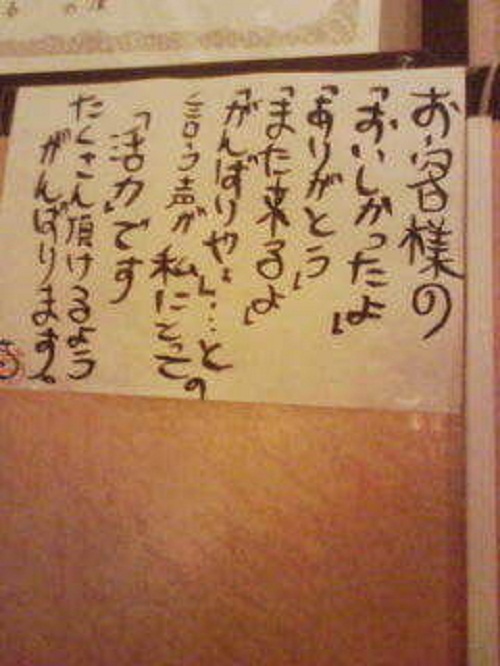 お客様の
「おいしかったよ」
「ありがとう」
「また来るよ」
「がんばりやぁ」…と
言う声が 私にとっての
「活力」です
たくさん頂けるよう
がんばります。